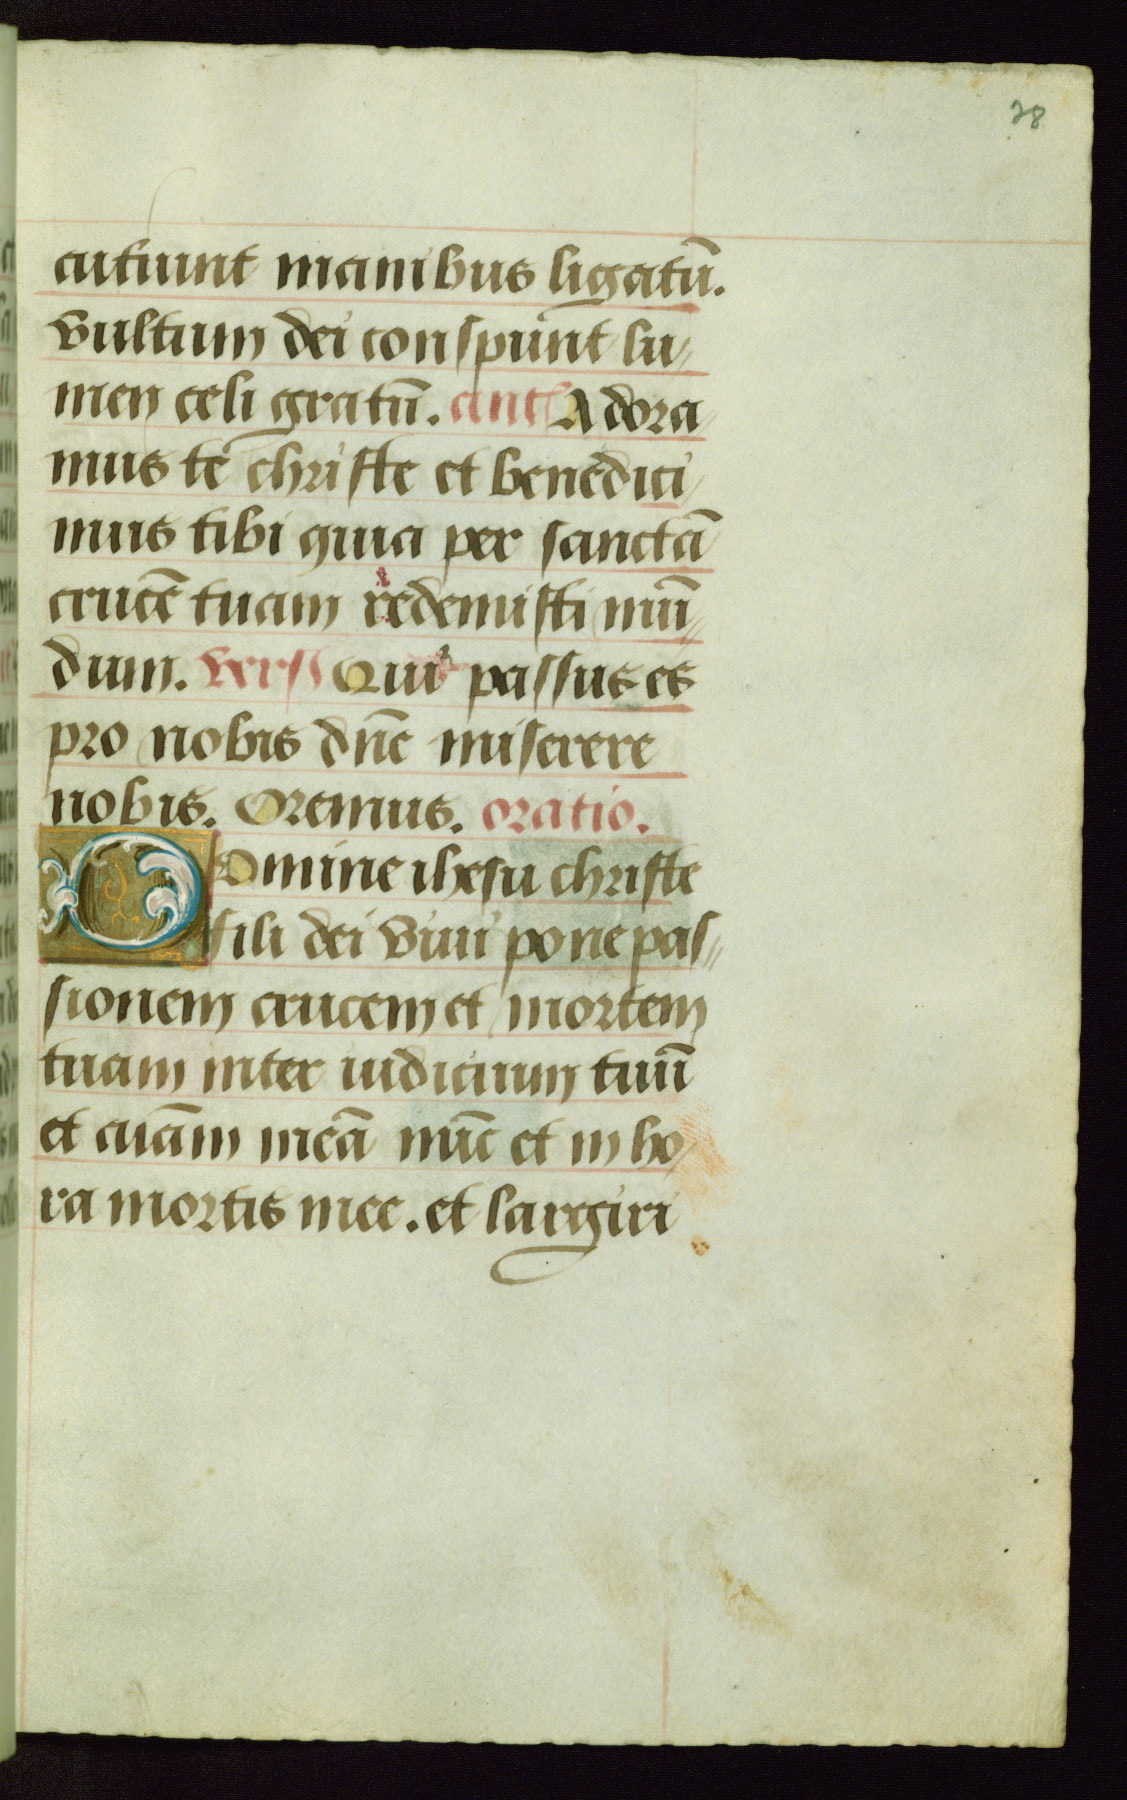 28
cutiunt manibus ligatū.
vultum dei conspuunt lu
men celi gratū. ant Adora
mus te christe et benedici
mus tibi quia per sanctā
crucē tuam redemisti mū
dum. vers Qui passus es
pro nobis dn̄e miserere
nobis. Oremus. oratio.
Domine ihesu christe
fili dei viui pone pas
sionem crucem et mortem
tuam inter iudicium tuū
et aīam meā nūc et in ho
ra mortis mee. et largiri